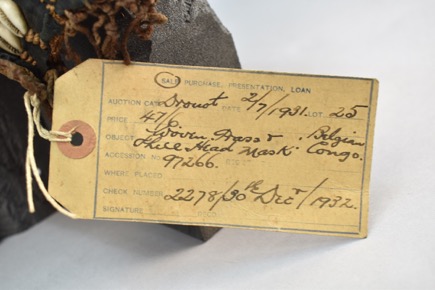 SALE PURCHASE, PRESENTATION, LOAN
AUCTION CAT. Drouot DATE 2/7/1931 LOT. 25
PRICE 47/6.
OBJECT Woven Grass & Belgian
Shell Head Mask Congo.
ACCESSION NO. 97266.
WHERE PLACED
CHECK NUMBER 2278/30th Decr/1932.
SIGNATURE